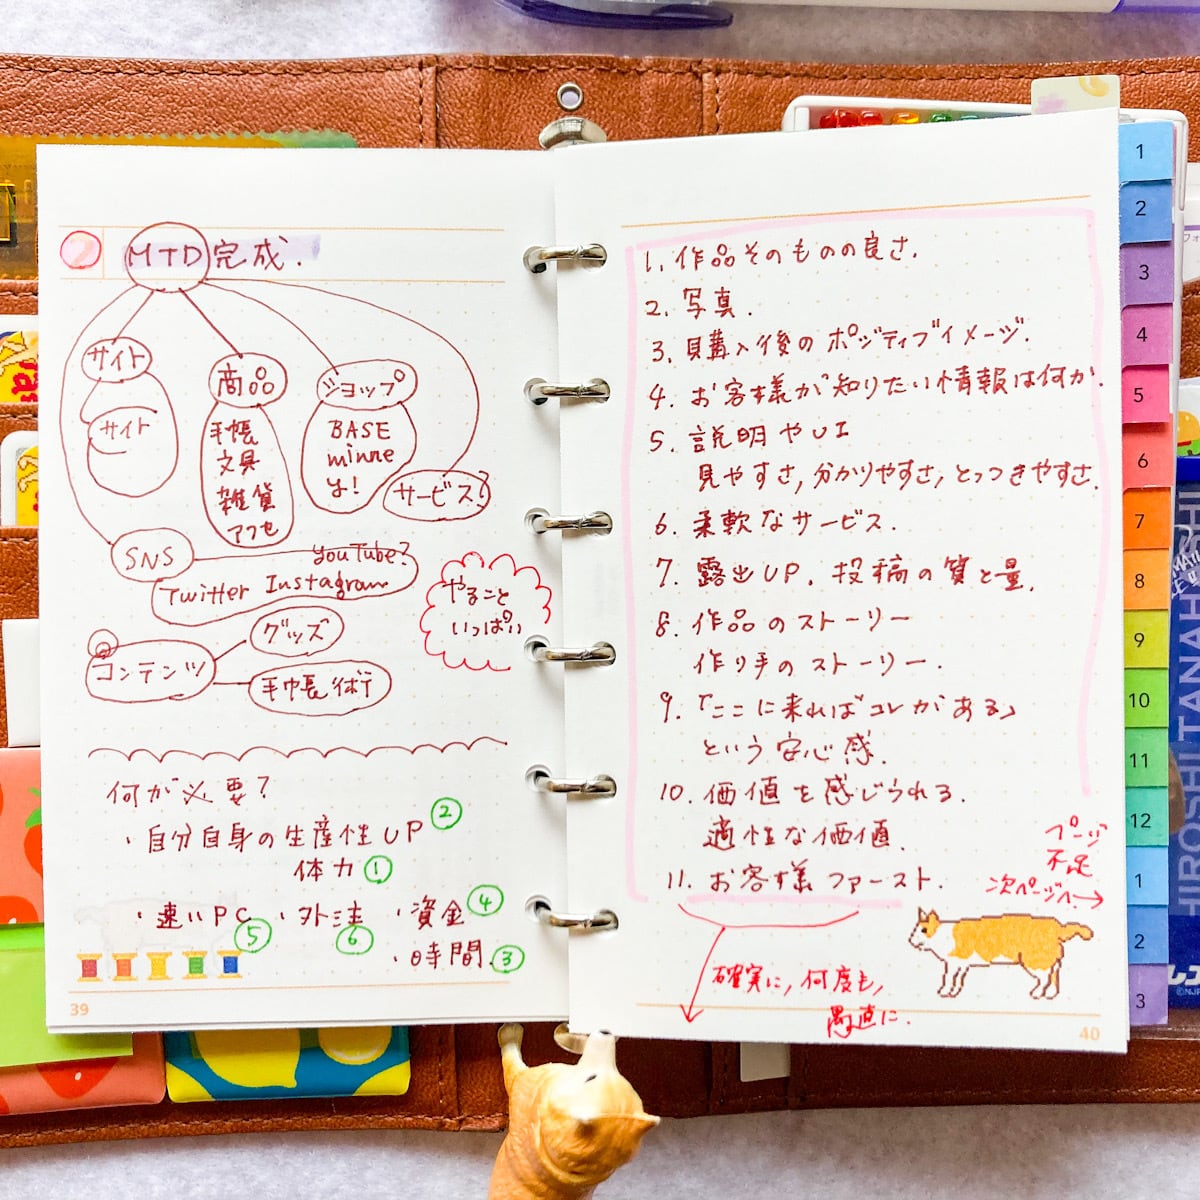 MTD完成.
サイト
サイト
商品
手帳
文具
雑貨
アクセ
ショップ
BASE
minne
y!
サービス!
SNS
YouTube?
Twitter Instagram
コンテンツ
グッズ
手帳術
やること
いっぱい
何が必要?
・自分自身の生産性UP ②
体力 ①
・速いPC ⑤
・外注 ⑥
・資金 ④
・時間 ③
39
1. 作品そのものの良さ.
2. 写真.
3. 購入後のポジティブイメージ.
4. お客様が知りたい情報は何か.
5. 説明やUI
見やすさ, 分かりやすさ, とっつきやすさ.
6. 柔軟なサービス.
7. 露出UP. 投稿の質と量.
8. 作品のストーリー
作り手のストーリー.
9.「ここに来ればコレがある」
という安心感.
10. 価値を感じられる.
適性な価値.
11. お客様ファースト.
ページ
不足
次ページへ→
確実に, 何度も,
愚直に.
40
1
2
3
4
5
6
7
8
9
10
11
12
1
2
3
HIROSHI TANAHASHI